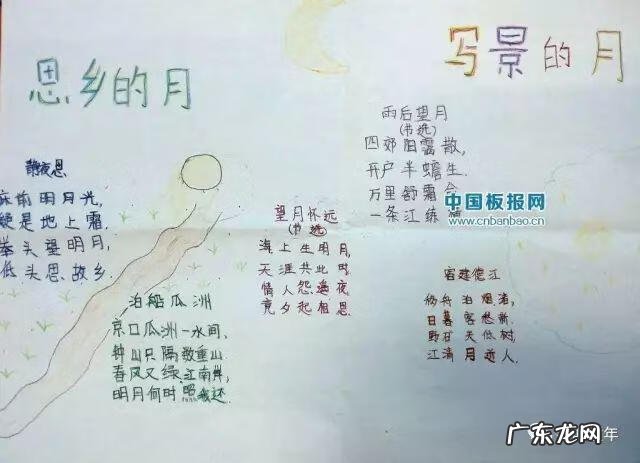 思乡的月
静夜思
床前明月光,
疑是地上霜.
举头望明月,
低头思故乡.
泊船瓜洲
京口瓜洲一水间,
钟山只隔数重山.
春风又绿江南岸,
明月何时照我还.
望月怀远
(节选)
海上生明月,
天涯共此时.
情人怨遥夜
竟夕起相思.
写景的月
雨后望月
(节选)
四郊阴霭散,
开户半蟾生.
万里舒霜合
一条江练横
中国板报网
www.cnbanbao.cn
宿建德江
移舟泊烟渚,
日暮客愁新.
野旷天低树,
江清月近人.
年
广东龙网